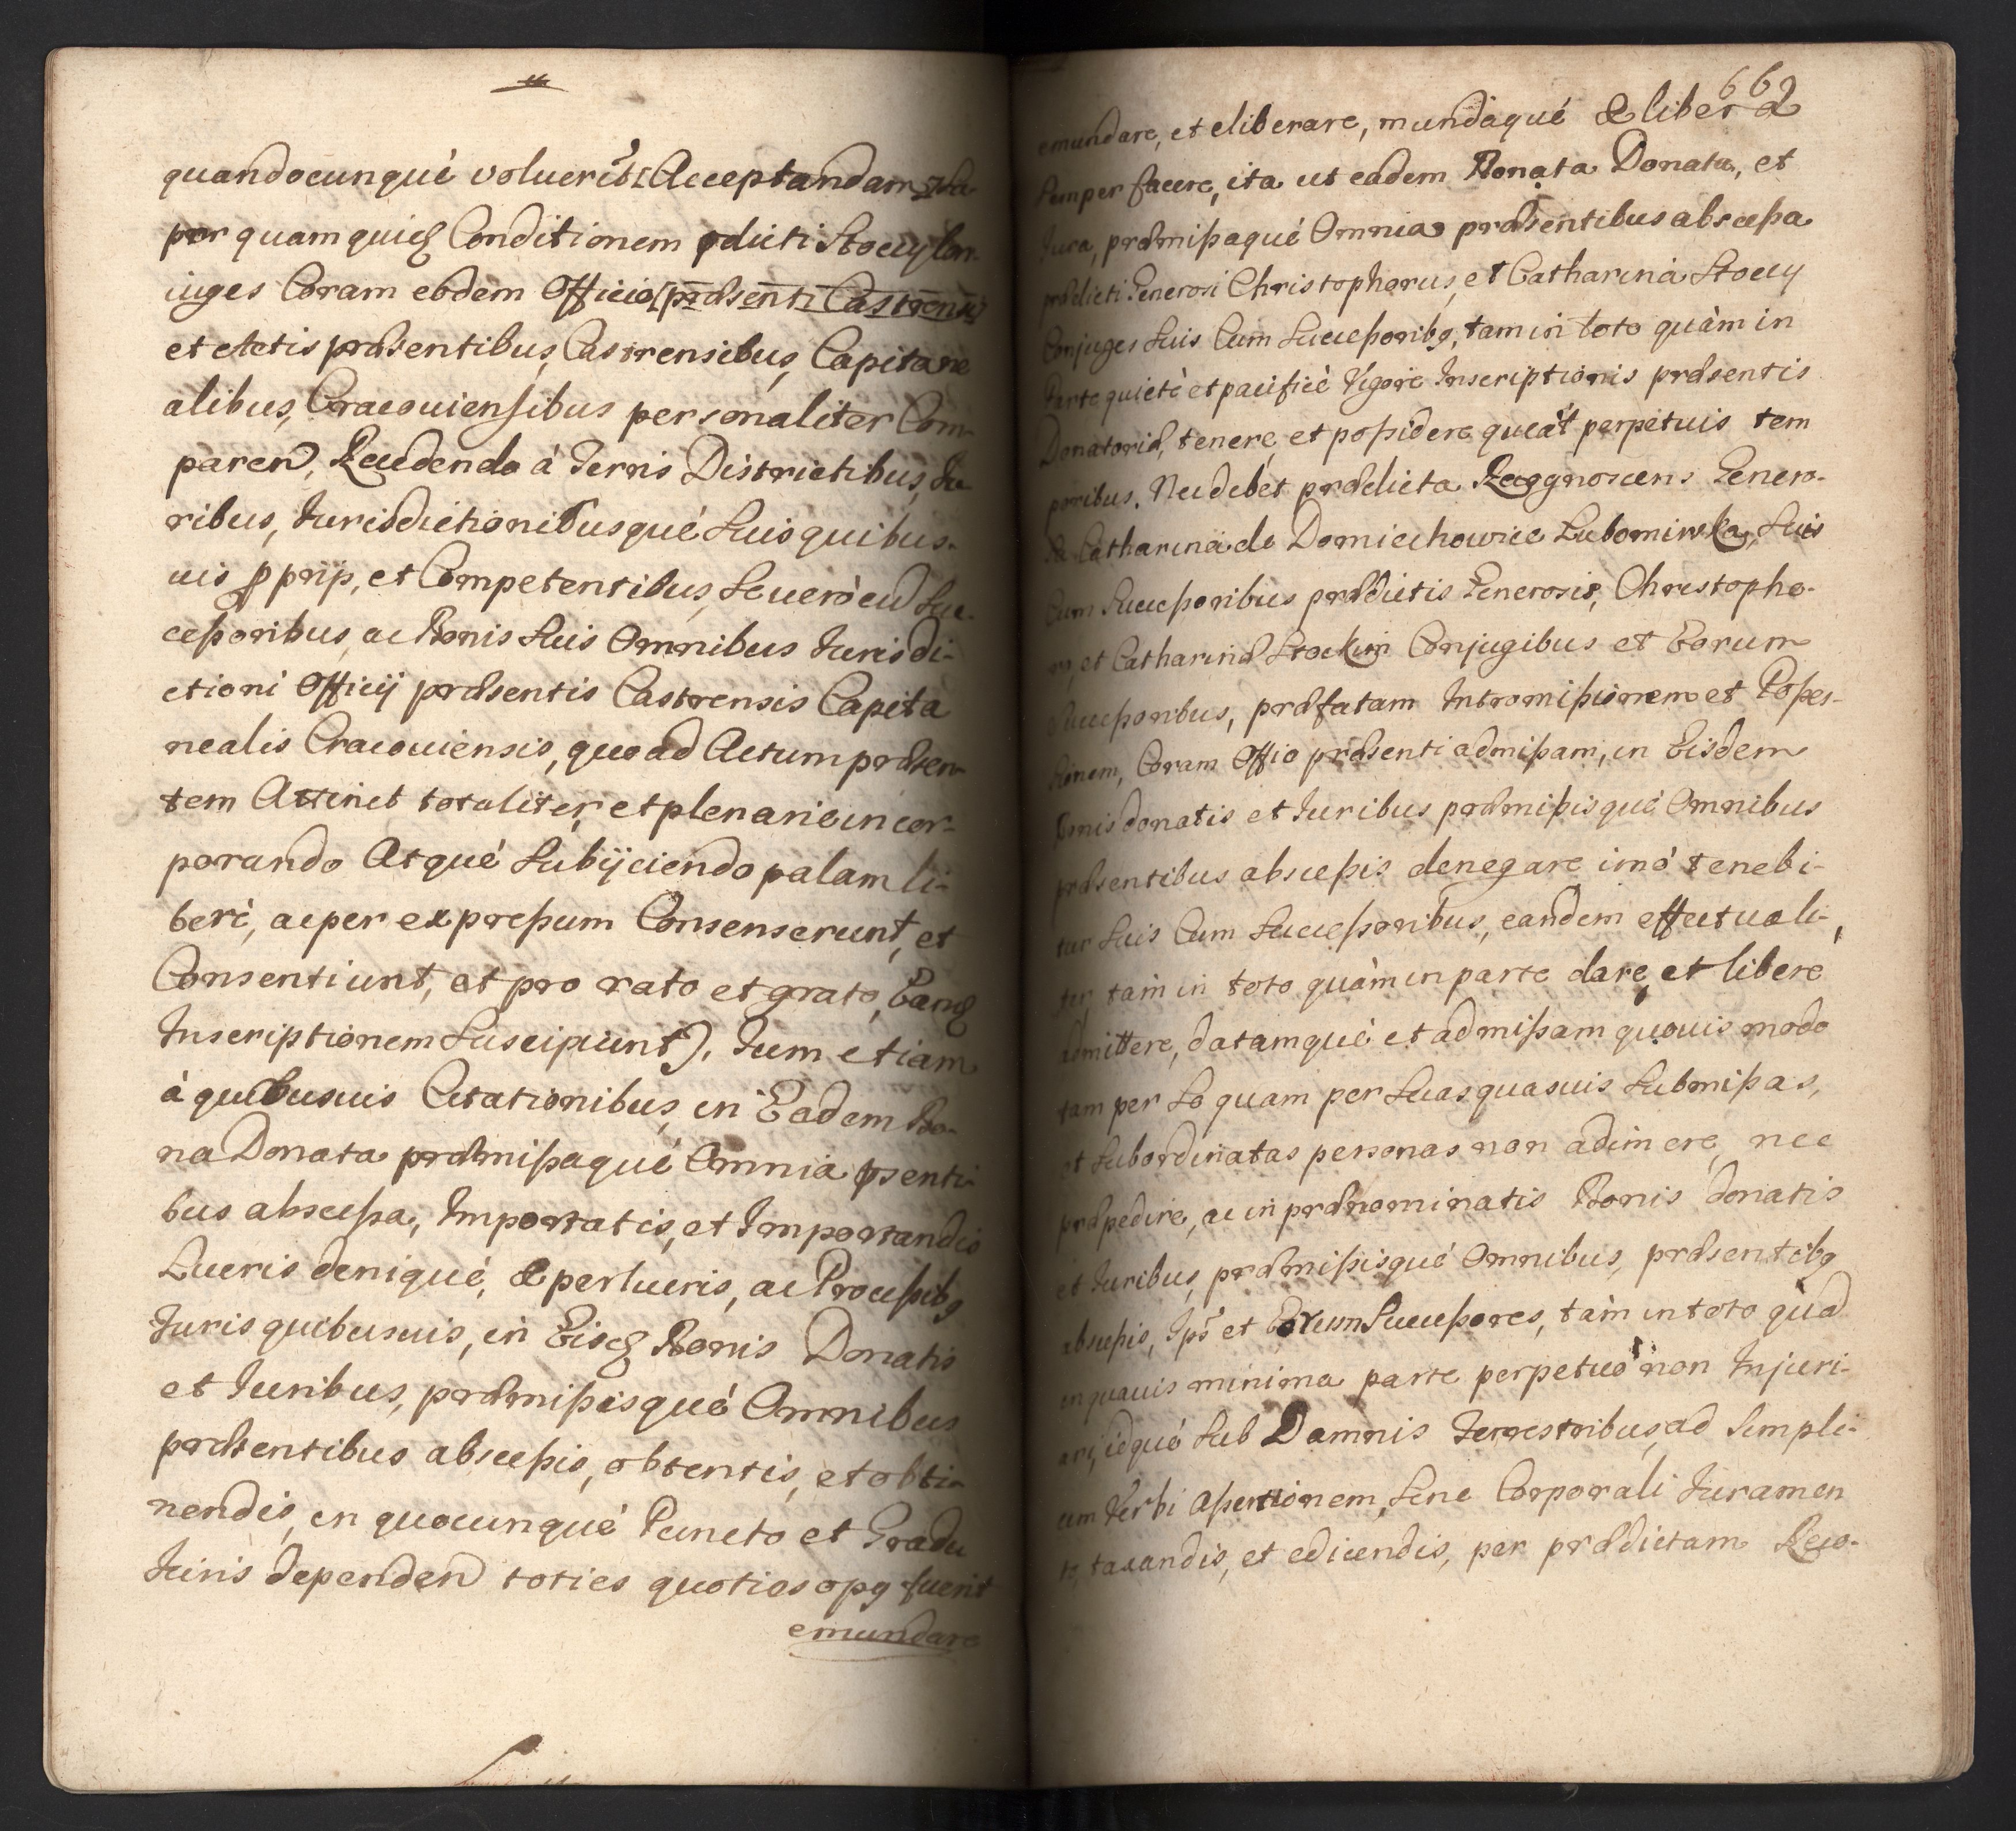 quandocunqué voluerit [Acceptandam
por quam quidẽ Conditionem pdicti Stoccy Con-
iuges Coram eodem Officio [præsenti Castrensi]
et Actis præsentibus, Castrensibus, Capitane
alibus, Cracouiensibus personaliter Com-
paren, Recedendo á Terris Districtibus, Ju
ribus, Jurisdictionibusqué Suis quibus-
uis pprijs, et Competentibus, Se veró cu Suc-
cessoribus, ac Bonis Suis Omnibus Jurisdi-
ctioni Officij præsentis Castrensis Capita
nealis Cracouiensis, quo ad Actum præsen-
tem Attinet totaliter, et plenarie incor-
porando Atqué Subijciendo palam li-
beré, ac per expressum Consenserunt, et
Consentiunt, et pro rato et grato, Eandẽ
Inscriptionem Suscipiunt). Tum etiam
á quibusuis Citationibus, in Eadem Bo-
na Donata præmissaqué Omnia psenti-
bus abscessa, Importatis, et Importandis
Lucris deniqué, & perlucris, ac Processibg
Juris quibusuis, in Eisdẽ Bonis Donatis
et Juribus, præmissisqué Omnibus
præsentibus abscessis, obtentis, et obti-
nendis, in quocunqué Puncto et Gradu
Juris dependen toties quoties opg fuerit
emundare
662
emundare, et eliberare, mundaqué & libera
semper facere, ita ut eadem Bona ta Donata, et
Jura, præmissaqué Omnia præsentibus abscessa
prædicti Generosi Christophorus, et Catharina Stoccy
Conjuges Suis Cum Successoribg, tam in toto quàm in
Parte quieté et pacificé Vigore Inscriptionis præsentis
Donatoriæ, tenere, et possidere queat perpetuis tem
poribus. Nec debet prædicta Recognoscens Genero-
sa Catharina de Domiechowice Lubomirska, Suis
Cum Successoribus prædictis Generosis, Christopho-
ro, et Catharinæ Stockim Conjugibus et Eorum
Successoribus, præfatam Intromissionem et Posses-
sionem, Coram Offio præsenti admissam, in Eisdem
Bonis donatis et Juribus præmissisqué Omnibus
præsentibus abscessis denegare imó tenebi-
tur Suis Cum Successoribus, eandem effectuali-
ter, tam in toto quàm in parte dare, et libere
admittere, datamqué et admissam quouis modo
tam per Se quam per Suas quasuis Submissas,
et Subordinatas personas non adimere, nec
præpedire, ac in prænominatis Bonis donatis
et Juribus, præmissisqué Omnibus, præsentibg
abscessis, Ips et Eorum Successores, tàm in toto quàd
in quauis minima parte perpetuó non Injuri-
ari, idqué Sub Damnis Terrestribus, ad Simpli-
cem Verbi assertionem, Sine Corporali Juramen
to, taxandis, et edicendis, per prædictam Reco-